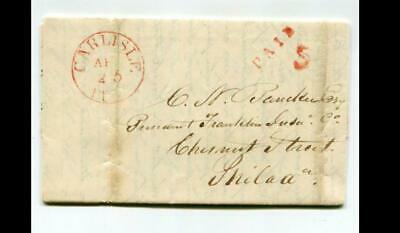 CARLISLE
25
PAID
5
C. N. Bancker Esq
President Franklin Insu. Co.
Chesnut Street.
Philada.